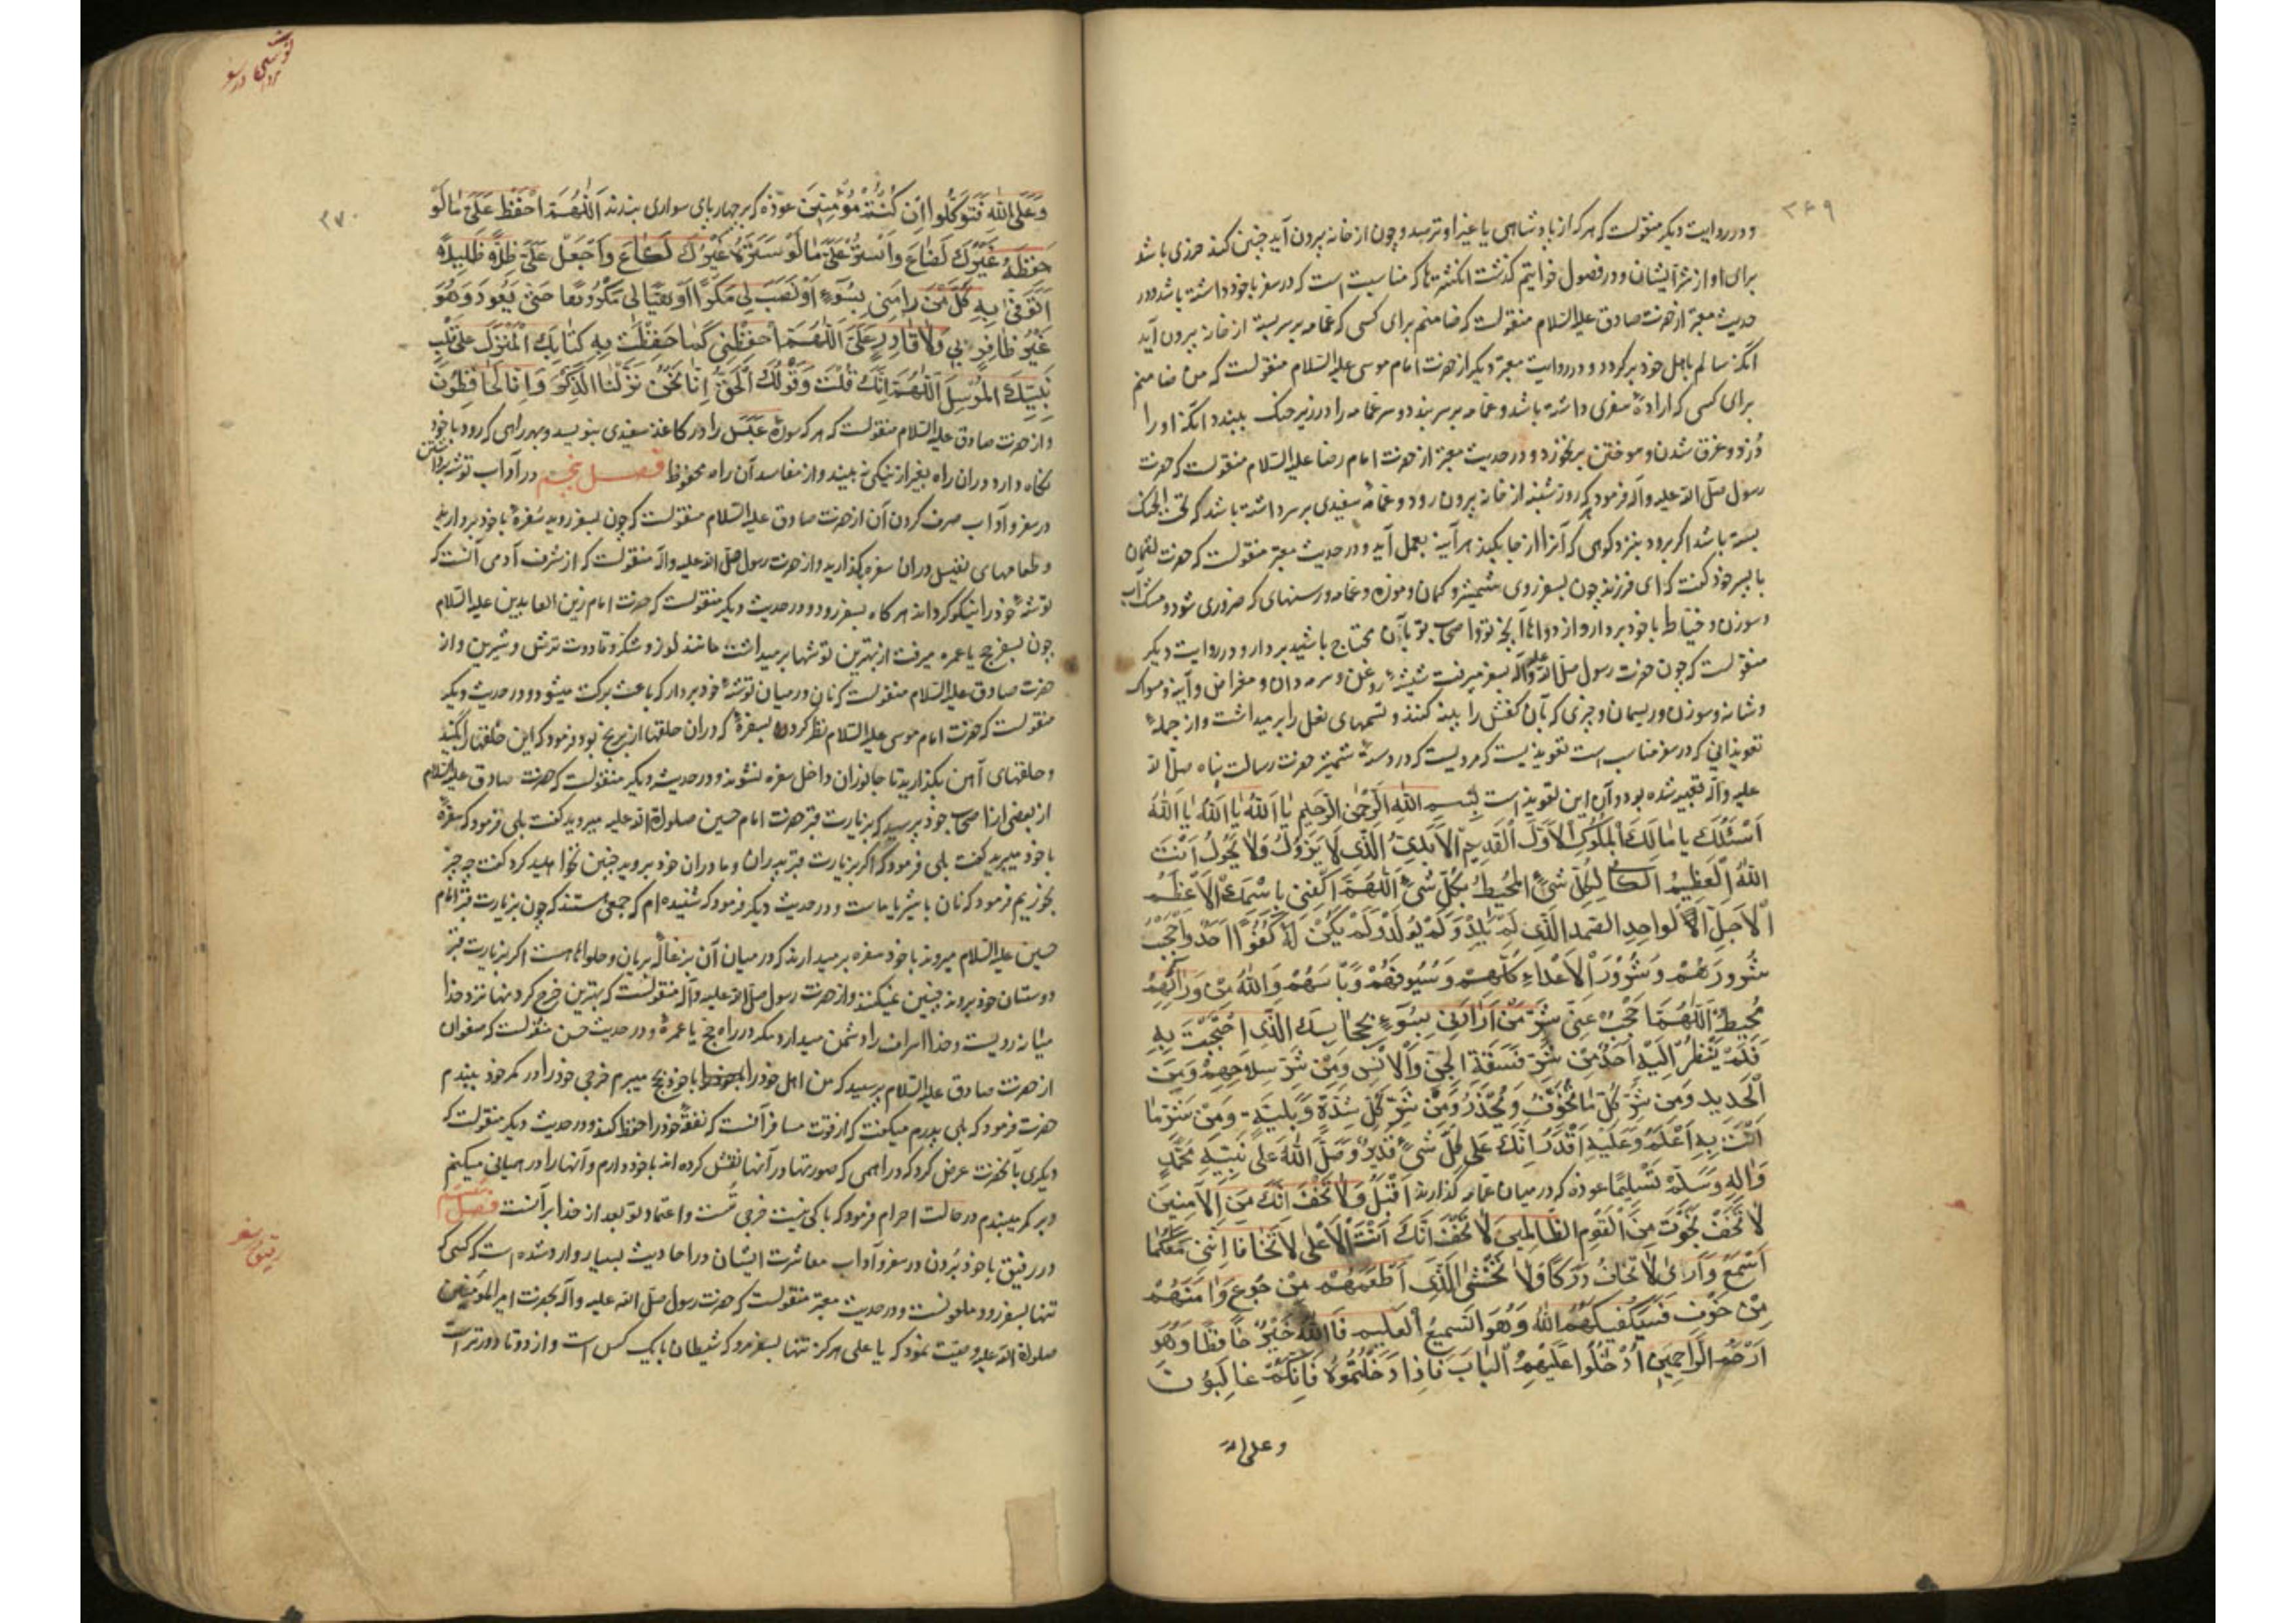 ۳۶۹
و در روایت دیگر منقولست که هر که از پادشاهی یا غیر او ترسد و چون از خانه بیرون آید چنین کند حرزی باشد
برای او از شر ایشان و در فصول خواتیم گذشت انگشترها که مناسبت است که در سفر با خود داشته باشد و در
حدیث معتبر از حضرت صادق علیه السّلام منقولست که ضامنم برای کسی که عمامه بر سر بسته از خانه بیرون آید
آنکه سالم باهل خود برگردد و در روایت معتبر دیگر از حضرت امام موسی علیه السلام منقولست که من ضامنم
برای کسی که ارادهٔ سفری داشته باشد و عمامه بر سر بندد و سر عمامه را در زیر حنک ببندد آنکه او را
دزد و غرق شدن و سوختن برنخورد و در حدیث معتبر از حضرت امام رضا علیه السّلام منقولست که حضرت
رسول صلّی الله علیه وآله فرمود که روز شنبه از خانه بیرون رود و عمامهٔ سفیدی بر سر داشته باشد که تحت الحنک
بسته باشد اگر برود بنزد کوهی که آنرا از جا بکند هر آینه بعمل آید و در حدیث معتبر منقولست که حضرت لقمان
با پسر خود گفت که ای فرزند چون بسفر روی شمشیر و کمان و موزه و عمامه و رسنهای که ضروری شود و مشک آب
و سوزن و خیاط با خود بردار و از دواها آنچه تو و اصحاب تو بآن محتاج باشید بردار و در روایت دیگر
منقولست که چون حضرت رسول صلّی الله علیه وآله بسفر میرفت شیشهٔ روغن و سرمه دان و مقراض و آینه و مسواک
و شانه و سوزن و ریسمان و چیزی که بآن کفش را پینه کنند و تسمهای نعل را برمیداشت و از جملهٔ
تعویذاتی که در سفر مناسب است تعویذیست که مرویست که در دستهٔ شمشیر حضرت رسالت پناه صلّی الله
علیه وآله تعبیه شده بود و آن این تعویذ است بِسْمِ اللهِ الرَّحْمٰنِ الرَّحِیمِ یا اَللهُ یا اَللهُ یا اَللهُ
اَسْئَلُکَ یا مالِکَ الْمُلُوکِ الْاَوَّلَ الْقَدِیمَ الْاَبَدِیَّ الَّذِی لا یَزُولُ وَلا یَحُولُ اَنْتَ
اللهُ الْعَظِیمُ الْکافِی لِکُلِّ شَیْءٍ الْمُحِیطُ بِکُلِّ شَیْءٍ اَللّٰهُمَّ اکْفِنِی بِاسْمِکَ الْاَعْظَمِ
الْاَجَلِّ الْواحِدِ الصَّمَدِ الَّذِی لَمْ یَلِدْ وَلَمْ یُولَدْ وَلَمْ یَکُنْ لَهُ کُفُوًا اَحَدٌ وَاحْجُبْ
شُرُورَهُمْ وَشُرُورَ الْاَعْداءِ کُلِّهِمْ وَسُیُوفَهُمْ وَبَأْسَهُمْ وَاللهُ مِنْ وَرائِهِمْ
مُحِیطٌ اَللّٰهُمَّ احْجُبْ عَنِّی شَرَّ مَنْ اَرادَنِی بِسُوءٍ بِحِجابِکَ الَّذِی احْتَجَبْتَ بِهِ
فَلَمْ یَنْظُرْ اِلَیْهِ اَحَدٌ مِنْ شَرِّ فَسَقَةِ الْجِنِّ وَالْاِنْسِ وَمِنْ شَرِّ سِلاحِهِمْ وَمِنَ
الْحَدِیدِ وَمِنْ شَرِّ کُلِّ ما یُتَخَوَّفُ وَیُحْذَرُ وَمِنْ شَرِّ کُلِّ شِدَّةٍ وَبَلِیَّةٍ وَمِنْ شَرِّ ما
اَنْتَ بِهِ اَعْلَمُ وَعَلَیْهِ اَقْدَرُ اِنَّکَ عَلیٰ کُلِّ شَیْءٍ قَدِیرٌ وَصَلَّی اللهُ عَلیٰ نَبِیِّهِ مُحَمَّدٍ
وَآلِهِ وَسَلَّمَ تَسْلِیمًا عوذه که در میان عمامه گذارند اَقْبِلْ وَلا تَخَفْ اِنَّکَ مِنَ الْآمِنِینَ
لا تَخَفْ نَجَوْتَ مِنَ الْقَوْمِ الظّالِمِینَ لا تَخَفْ اِنَّکَ اَنْتَ الْاَعْلیٰ لا تَخافا اِنَّنِی مَعَکُما
اَسْمَعُ وَاَریٰ لا تَخافُ دَرَکًا وَلا تَخْشیٰ الَّذِی اَطْعَمَهُمْ مِنْ جُوعٍ وَآمَنَهُمْ
مِنْ خَوْفٍ فَسَیَکْفِیکَهُمُ اللهُ وَهُوَ السَّمِیعُ الْعَلِیمُ فَاللهُ خَیْرٌ حافِظًا وَهُوَ
اَرْحَمُ الرّاحِمِینَ اُدْخُلُوا عَلَیْهِمُ الْبابَ فَاِذا دَخَلْتُمُوهُ فَاِنَّکُمْ غالِبُونَ
وعلی الله
توشه
بردن در سفر
۳۷۰
وَعَلَی اللهِ فَتَوَکَّلُوا اِنْ کُنْتُمْ مُؤْمِنِینَ عوذه که بر چهارپای سواری بندند اَللّٰهُمَّ احْفَظْ عَلَیَّ ما لَوْ
حَفِظَهُ غَیْرُکَ لَضاعَ وَاسْتُرْ عَلَیَّ ما لَوْ سَتَرَهُ غَیْرُکَ لَشاعَ وَاجْعَلْ عَلَیَّ ظِلًّا ظَلِیلًا
اَتَوَقّیٰ بِهِ کُلَّ مَنْ رامَنِی بِسُوءٍ اَوْ نَصَبَ لِی مَکْرًا اَوْ هَیَّأَ لِی مَکْرُوهًا حَتّیٰ یَعُودَ وَهُوَ
غَیْرُ ظافِرٍ بِی وَلا قادِرٍ عَلَیَّ اَللّٰهُمَّ احْفَظْنِی کَما حَفِظْتَ بِهِ کِتابَکَ الْمُنْزَلَ عَلیٰ قَلْبِ
نَبِیِّکَ الْمُرْسَلِ اَللّٰهُمَّ اِنَّکَ قُلْتَ وَقَوْلُکَ الْحَقُّ اِنّا نَحْنُ نَزَّلْنَا الذِّکْرَ وَاِنّا لَهُ لَحافِظُونَ
و از حضرت صادق علیه السّلام منقولست که هر که سورهٔ عَبَسَ را در کاغذ سفیدی بنویسد و بهر راهی که رود با خود
نگاه دارد در ان راه بغیر از نیکی نبیند و از مفاسد آن راه محفوظ فصل پنجم در آداب توشه برداشتن
در سفر و آداب صرف کردن آن از حضرت صادق علیه السّلام منقولست که چون بسفر روید سفرهٔ با خود بردارید
و طعامهای نفیس در ان سفره بگذارید و از حضرت رسول صلّی الله علیه وآله منقولست که از شرف آدمی آنست که
توشهٔ خود را نیکو گرداند هر گاه بسفر رود و در حدیث دیگر منقولست که حضرت امام زین العابدین علیه السّلام
چون بسفر حج یا عمره میرفت از بهترین توشها برمیداشت مانند لوز و شکر و قاووت ترش و شیرین و از
حضرت صادق علیه السّلام منقولست که نان در میان توشهٔ خود بردار که باعث برکت میشود و در حدیث دیگر
منقولست که حضرت امام موسی علیه السلام نظر کردند بسفرهٔ که در ان حلقها از برنج بود فرمود که این حلقها را بکنید
و حلقهای آهن بگذارید تا جانوران داخل سفره نشوند و در حدیث دیگر منقولست که حضرت صادق علیه السلام
از بعضی از اصحاب خود پرسید که بزیارت قبر حضرت امام حسین صلوات الله علیه میروید گفت بلی فرمود که سفره
با خود میبرید گفت بلی فرمود که اگر بزیارت قبر پدران و مادران خود بروید چنین نخواهید کرد گفت چه چیز
بخوریم فرمود که نان با شیر یا ماست و در حدیث دیگر فرمود که شنیده ام که جمعی هستند که چون بزیارت قبر امام
حسین علیه السّلام میروند با خود سفره برمیدارند که در میان آن بزغالهٔ بریان و حلواها هست اگر بزیارت قبر
دوستان خود بروند چنین نمیکنند و از حضرت رسول صلّی الله علیه وآله منقولست که بهترین خرج کردنها نزد خدا
میانه رویست و خدا اسراف را دشمن میدارد مگر در راه حج یا عمره و در حدیث حسن منقولست که صفوان
از حضرت صادق علیه السّلام پرسید که من اهل خود را با خود بحج میبرم خرجی خود را در کمر خود ببندم
حضرت فرمود که بلی پدرم میگفت که از قوت مسافر آنست که نفقهٔ خود را حفظ کند و در حدیث دیگر منقولست که
دیگری بآنحضرت عرض کرد که دراهمی که صورتها در آنها نقش کرده اند با خود دارم و آنها را در همیانی میکنم
و بر کمر میبندم در حالت احرام فرمود که باکی نیست خرجی تست و اعتماد تو بعد از خدا بر آنست فصل ششم
در رفیق با خود بردن در سفر و آداب معاشرت ایشان در احادیث بسیار وارد شده است که کسی که
رفیق سفر
تنها بسفر رود ملعونست و در حدیث معتبر منقولست که حضرت رسول صلّی الله علیه وآله بحضرت امیر المؤمنین
صلوات الله علیه وصیّت نمود که یا علی هرگز تنها بسفر مرو که شیطان با یک کس است و از دو تا دورتر است